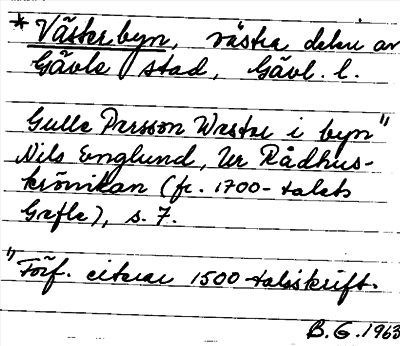 * Västerbyn, västra delen av
Gävle stad, Gävl. l.
Gulle Persson Westre i byn"
Nils Englund, Ur Rådhus-
krönikan (fr. 1700-talets
Gefle), s. 7.
"Förf. citerar 1500-talsskrift.
B.G. 1963